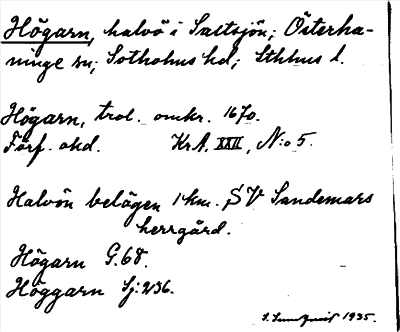 Högarn, halvö i Saltsjön; Österha-
ninge sn; Sotholms hd; Sthlms l.
Högarn, trol. omkr. 1670.
Förf. okd. KrA. XXII, N:o 5.
Halvön belägen 1 km. SV Sandemars
herrgård.
Högarn G.68.
Höggarn Sj:236.
S. Sundquist 1935.